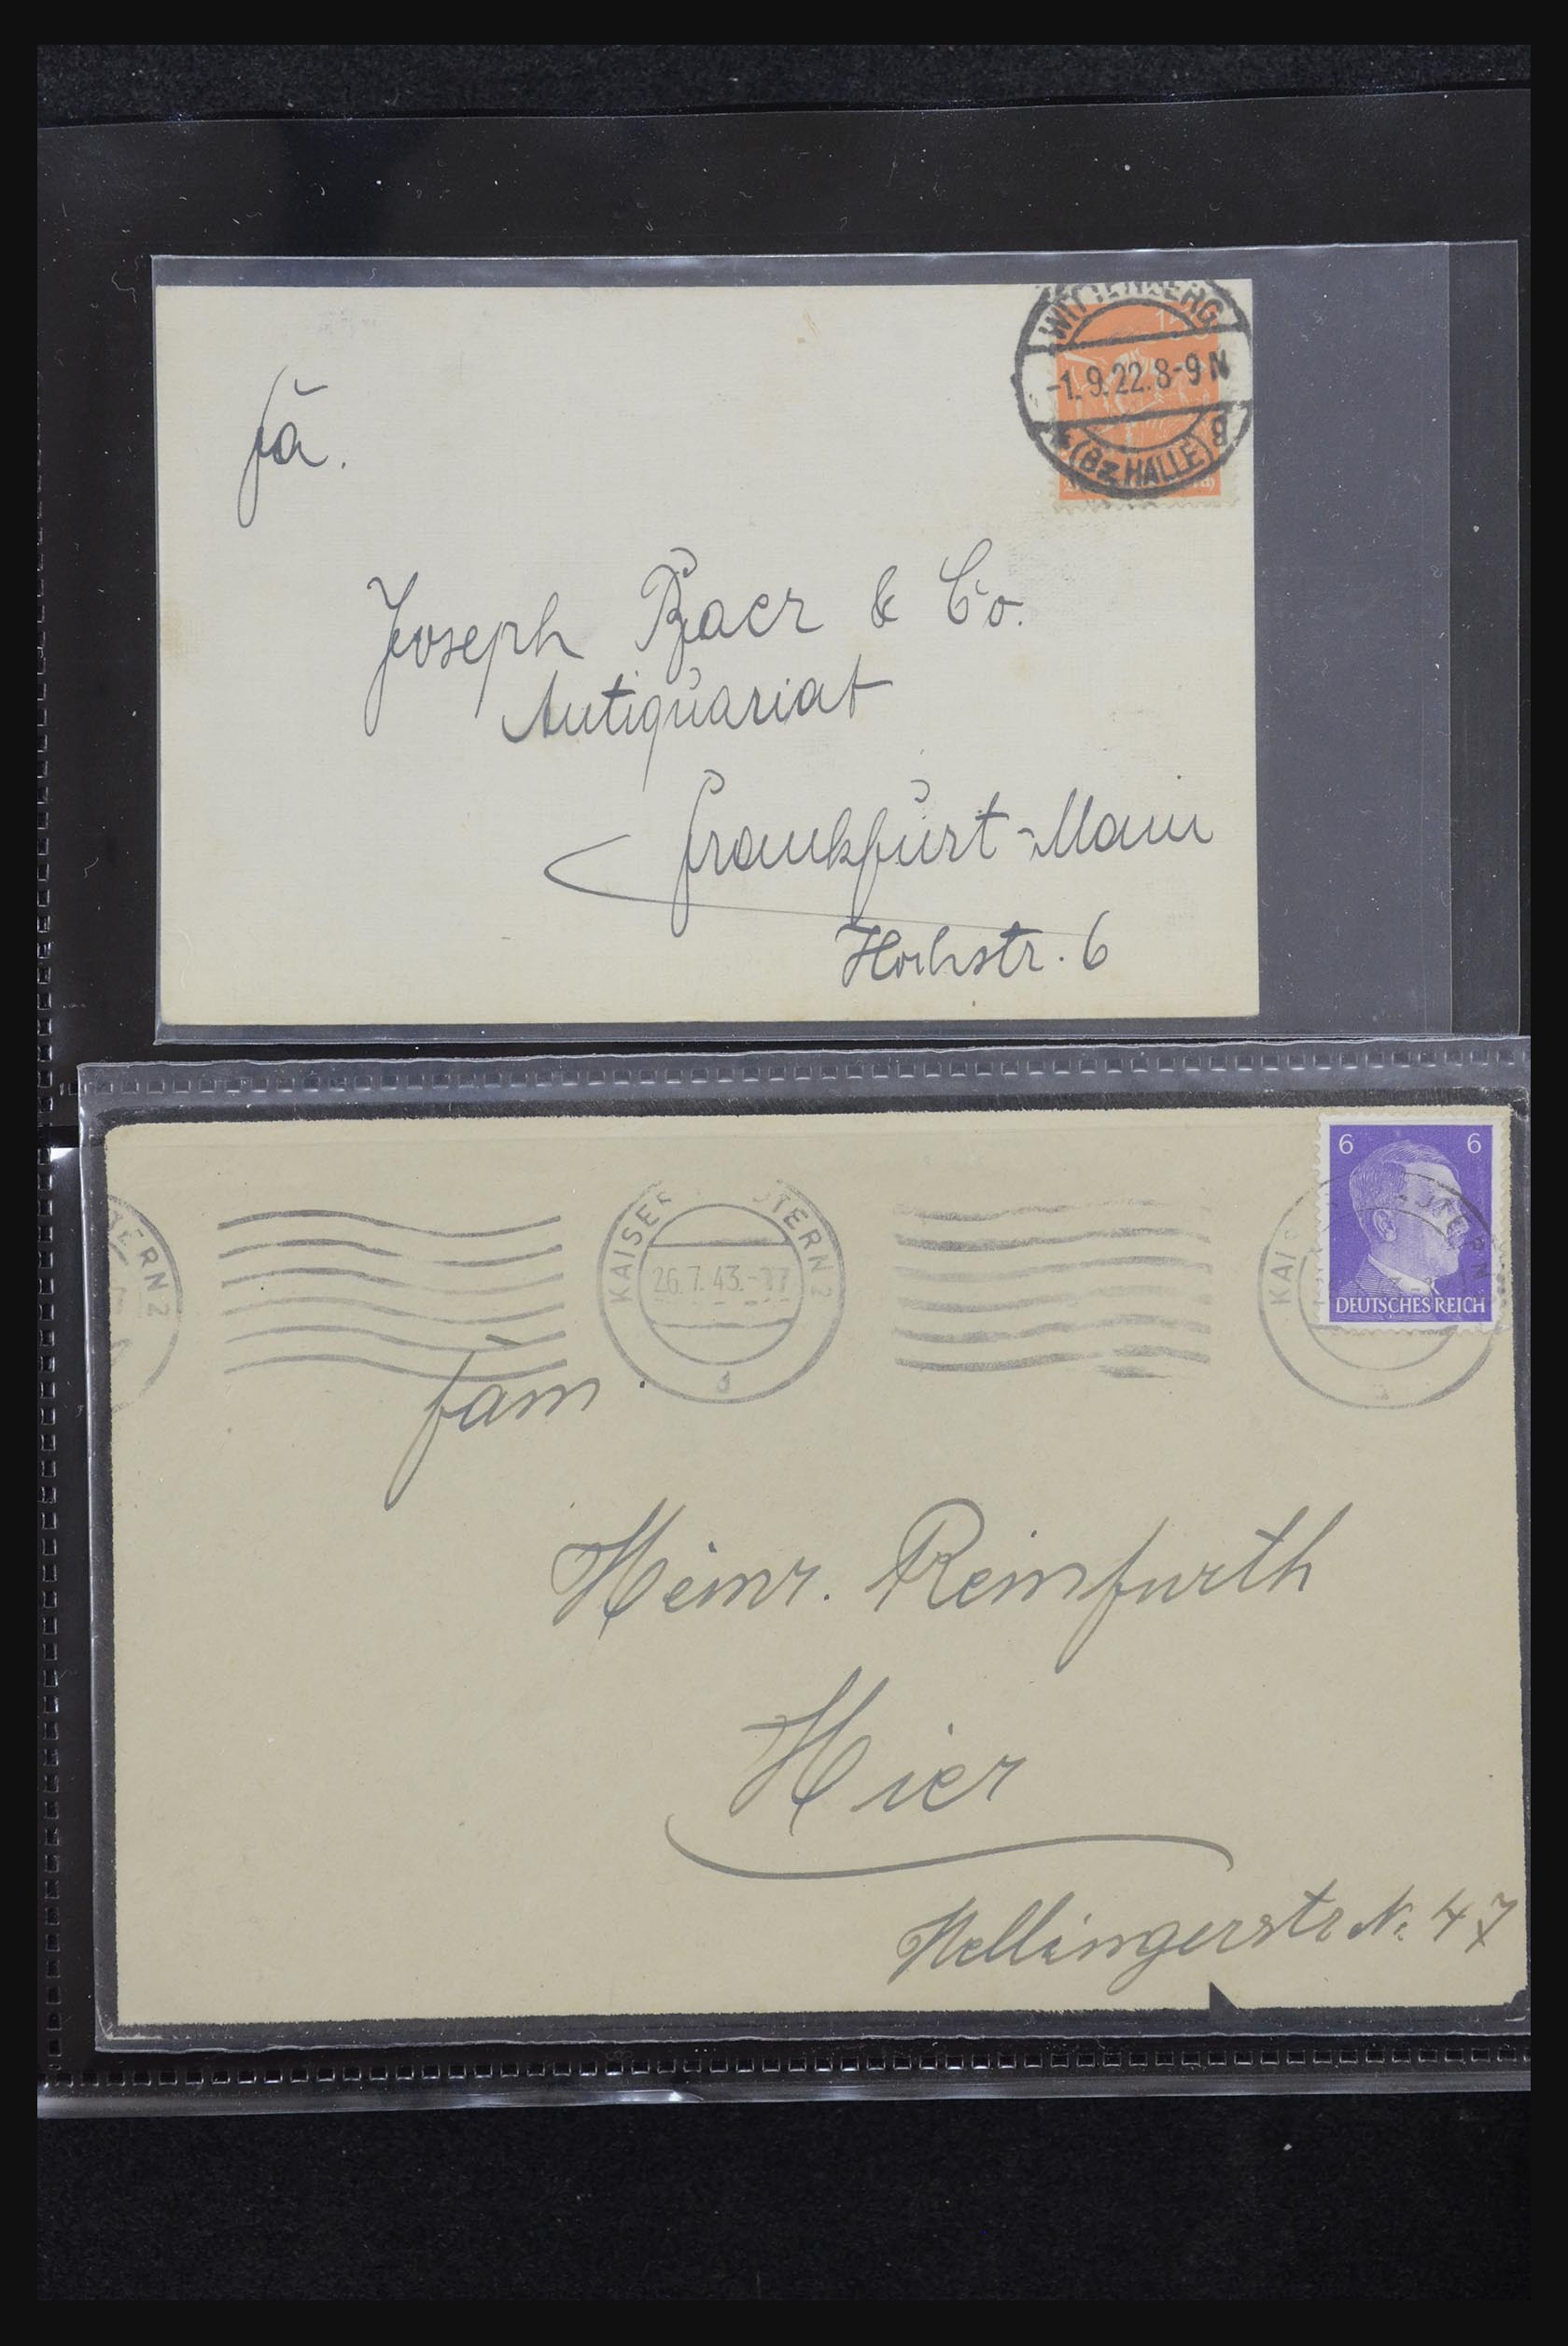 WITTENBERG
-1.9.22.8-9N
* (Bz. HALLE) g
Fa.
Joseph Baer & Co.
Antiquariat
Frankfurt-Main
Hochstr. 6
6 6
DEUTSCHES REICH
TERN 2
KAISE TERN 2
26.7.43.-17
d
KAI STERN
Fam.
Heinr. Reinfurth
Hier
No. 47